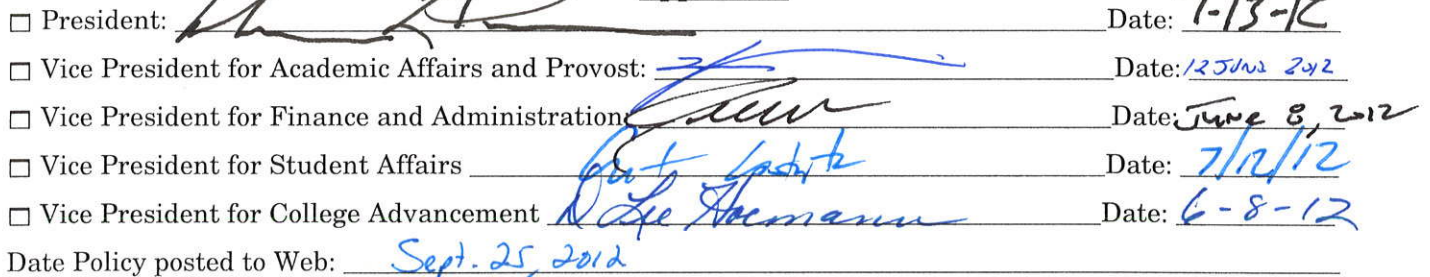 ☐ President: Date: 7-13-12
☐ Vice President for Academic Affairs and Provost: Date: 12 JUNE 2012
☐ Vice President for Finance and Administration Date: JUNE 8, 2012
☐ Vice President for Student Affairs Date: 7/12/12
☐ Vice President for College Advancement D Lee Hoemann Date: 6-8-12
Date Policy posted to Web: Sept. 25, 2012